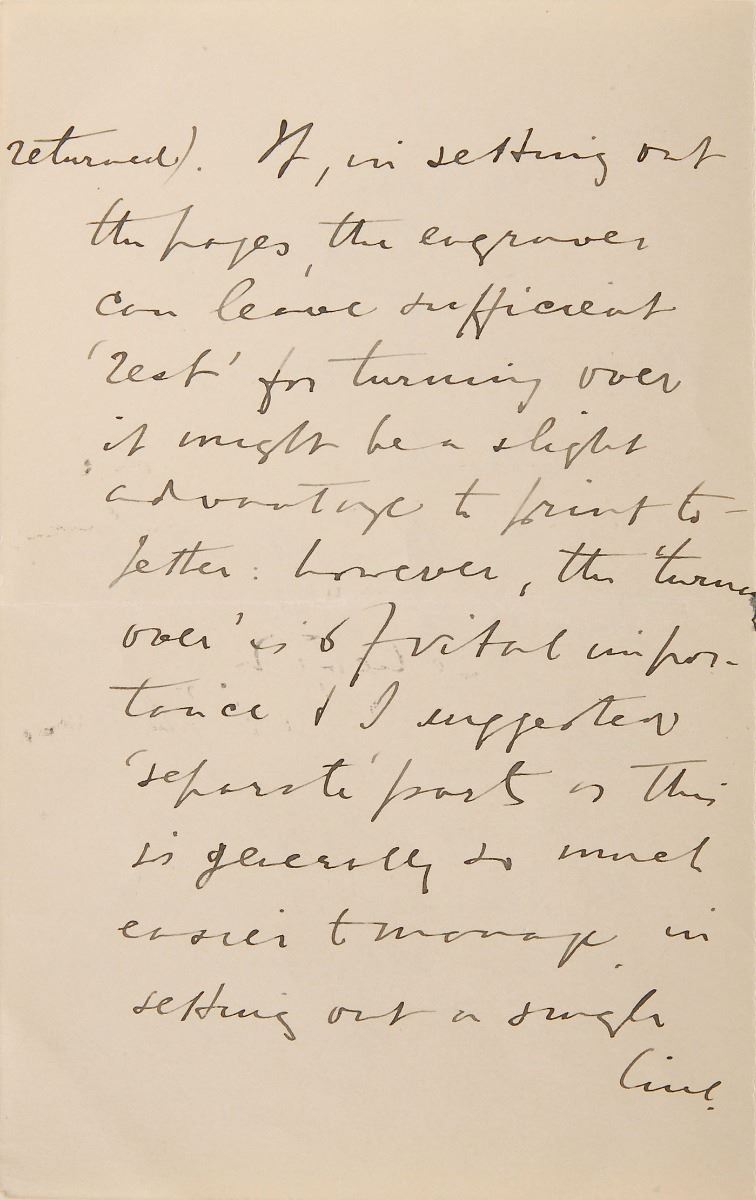 returned). If, in setting out
the pages, the engraver
can leave sufficient
'rest' for turning over
it might be a slight
advantage to print to-
gether: however, the 'turn
over' is of vital impor-
tance & I suggested
'separate' parts as this
is generally so much
easier to manage in
setting out a single
line.